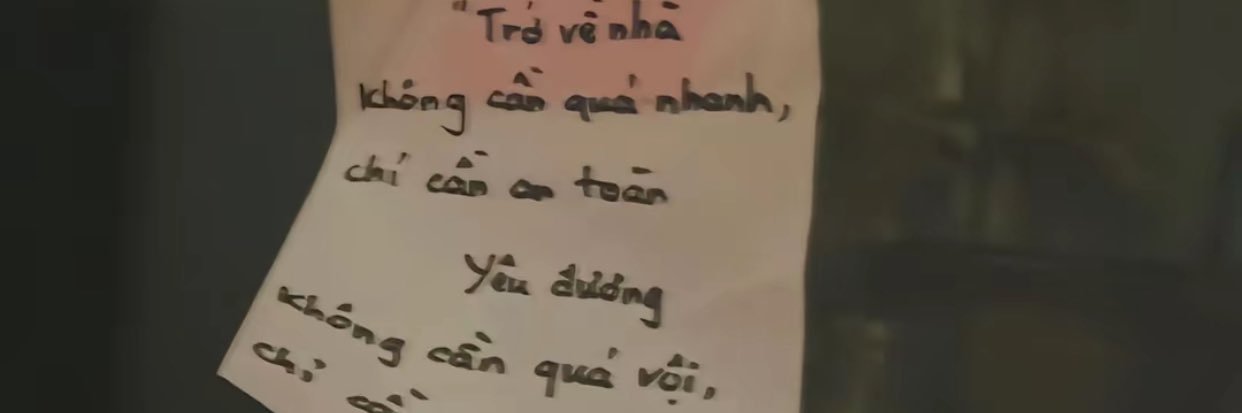 "Trở về nhà
không cần quá nhanh,
chỉ cần an toàn
Yêu đương
không cần quá vội,
chỉ cần